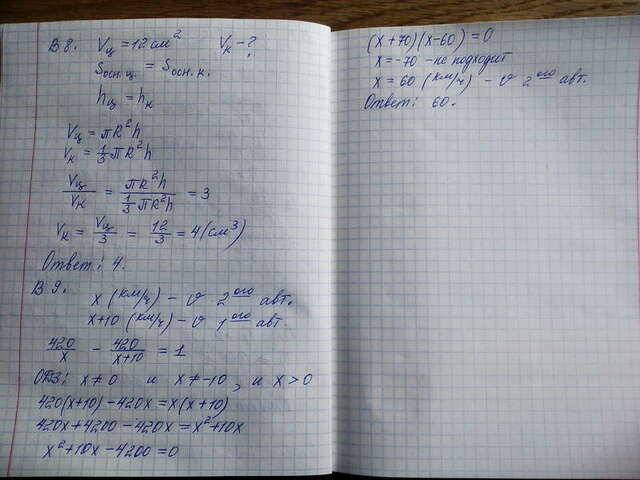 В 8. Vц = 12 см² Vк - ?
Sосн.ц. = Sосн.к.
hц = hк
Vц = πR²h
Vк = 1/3 πR²h
Vц/Vк = πR²h / (1/3 πR²h) = 3
Vк = Vц/3 = 12/3 = 4 (см³)
Ответ: 4.
В 9.
x (км/ч) – v 2ого авт.
x+10 (км/ч) – v 1ого авт.
420/x − 420/(x+10) = 1
ОДЗ: x ≠ 0 и x ≠ -10, и x > 0
420(x+10) − 420x = x(x+10)
420x + 4200 − 420x = x² + 10x
x² + 10x − 4200 = 0
(x + 70)(x − 60) = 0
x = −70 – не подходит
x = 60 (км/ч) – v 2ого авт.
Ответ: 60.